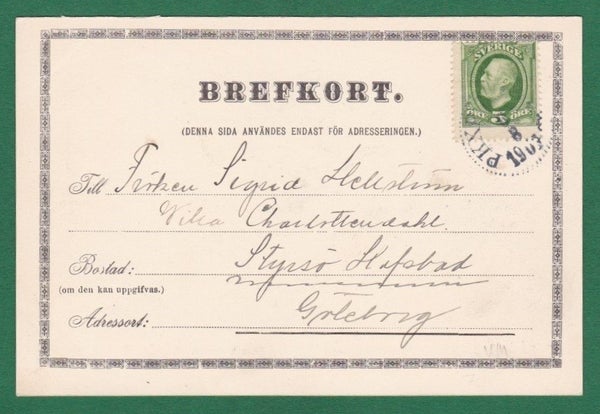 BREFKORT.
SVERIGE
ÖRE 5 ÖRE
(DENNA SIDA ANVÄNDES ENDAST FÖR ADRESSERINGEN.)
PKXP
8
190
Till Fröken Sigrid Hellström
Villa Charlottendahl
Bostad: Styrsö Hafsbad
(om den kan uppgifvas.)
Göteborg
Adressort: